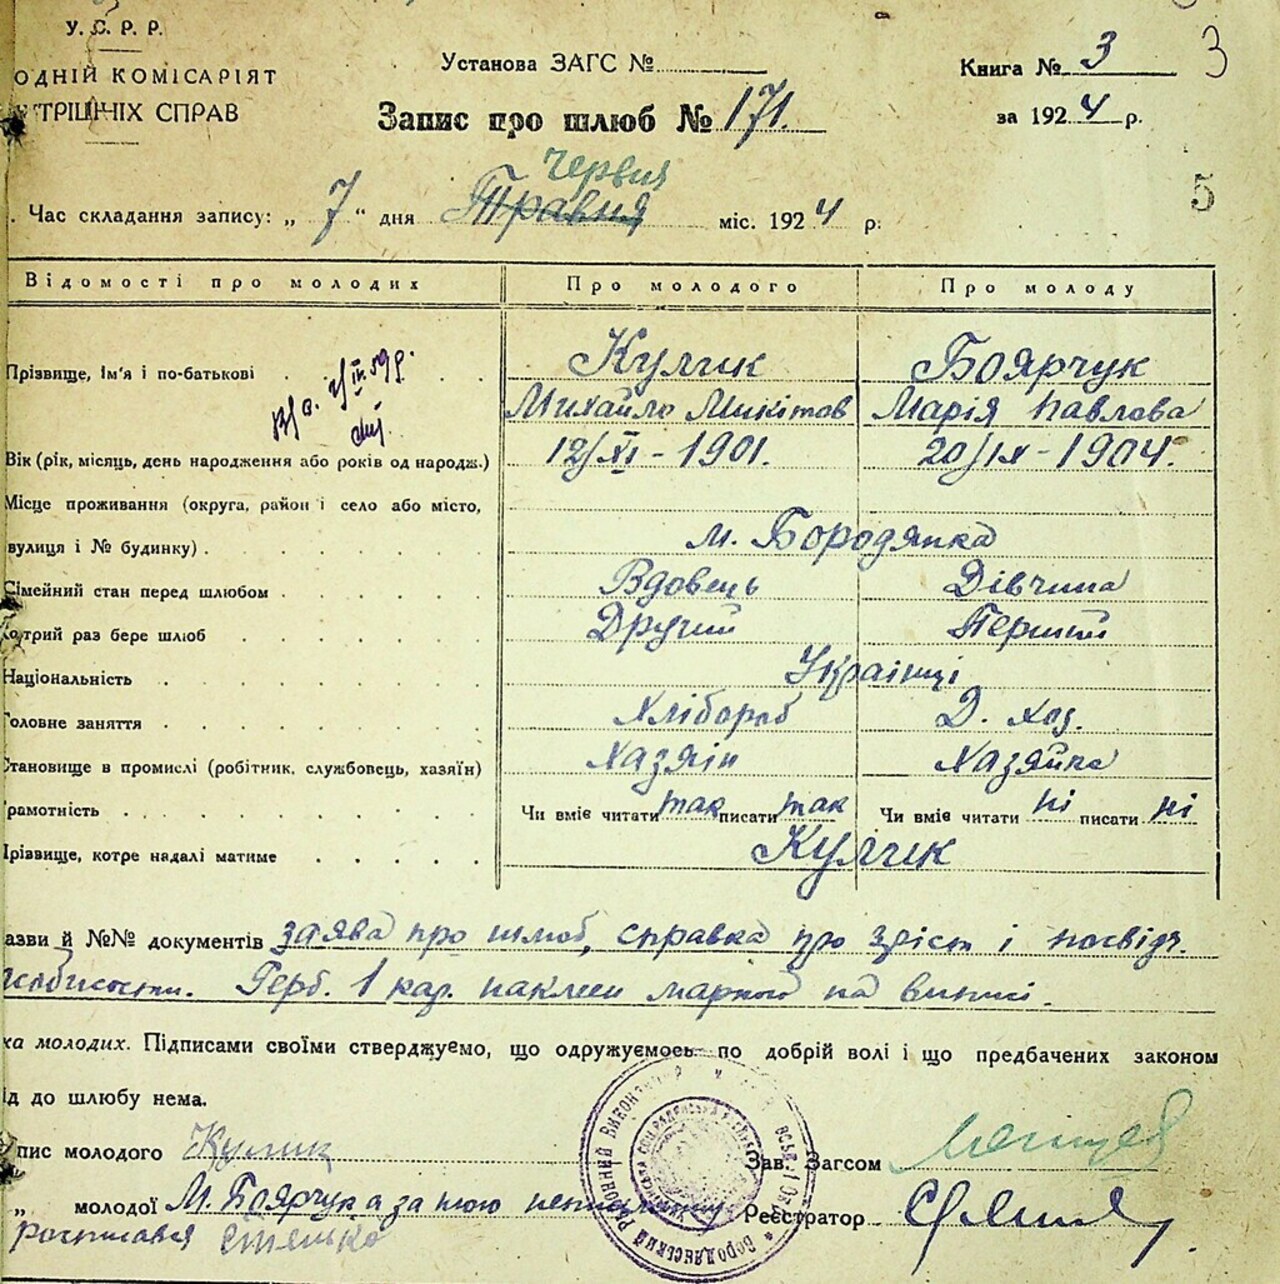 У. С. Р. Р.
ОДНІЙ КОМІСАРІЯТ
ТРІШНІХ СПРАВ
Установа ЗАГС №
Запис про шлюб № 171.
Книга № 3
3
за 1924 р.
5
Червня
Час складання запису: „ 7 “ дня Травня міс. 1924 р:
Відомості про молодих Про молодого Про молоду
Кулик Боярчук
Прізвище, ім'я і по-батькові
Михайло Микітов Марія Павлова
В/о. 2/IX 59 р.
Вік (рік, місяць, день народження або років од народж.) 12/XI - 1901. 20/IX - 1904.
Місце проживання (округа, район і село або місто,
вулиця і № будинку) . м. Бородянка
Сімейний стан перед шлюбом . Вдовець Дівчина
Котрий раз бере шлюб Другий Перший
Національність Українці
Головне заняття Хлібороб Д. хоз.
Становище в промислі (робітник, службовець, хазяїн) Хазяін Хазяйка
Грамотність Чи вміє читати так писати так Чи вміє читати ні писати ні
Прізвище, котре надалі матиме Кулик
азви й №№ документів заява про шлюб, справка про зріст і посвідч.
особистости. Герб. 1 кар. наклеен маркой на виписі.
ка молодих. Підписами своїми стверджуємо, що одружуємось по добрій волі і що предбачених законом
ід до шлюбу нема.
пис молодого Кулик Зав. Загсом
„ молодої М. Боярчук а за нею неписьменну Реєстратор
росписався Стешко